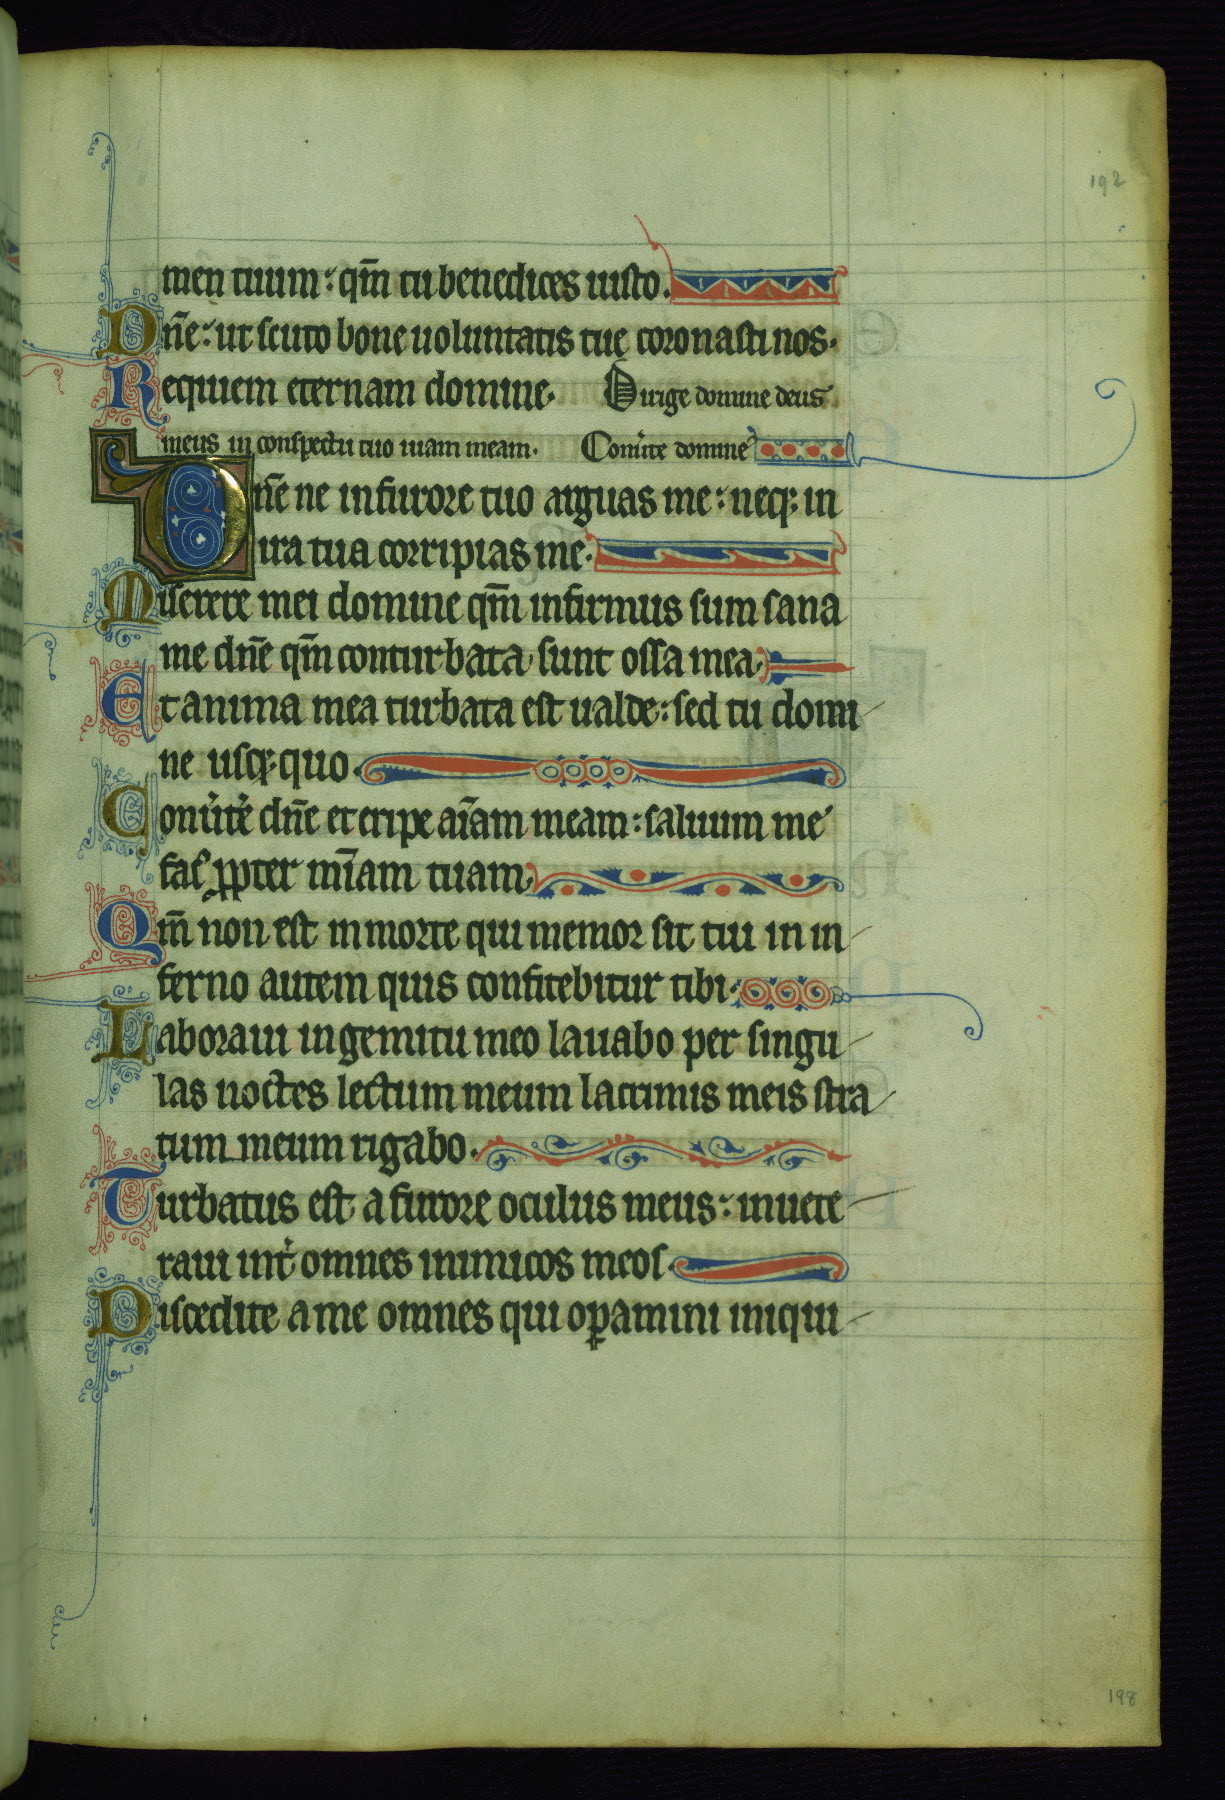 192
men tuum: qm̄ tu benedices iusto.
Dn̄e: ut scuto bone uoluntatis tue coronasti nos.
Requiem eternam domine. Dirige domine deus
meus in conspectu tuo uiam meam. Conūte domine
Dn̄e ne in furore tuo arguas me: neq; in
ira tua corripias me.
Miserere mei domine qm̄ infirmus sum sana
me dn̄e qm̄ conturbata sunt ossa mea.
Et anima mea turbata est ualde: sed tu domi
ne usq; quo.
Conūtē dn̄e et eripe aīam meam: saluum me
fac ꝓpter mīam tuam.
Qm̄ non est in morte qui memor sit tui in in
ferno autem quis confitebitur tibi.
Laboraui in gemitu meo lauabo per singu
las noctes lectum meum lacrimis meis stra
tum meum rigabo.
Turbatus est a furore oculus meus: inuete
raui int̄ omnes inimicos meos.
Discedite a me omnes qui oꝑamini iniqui
198